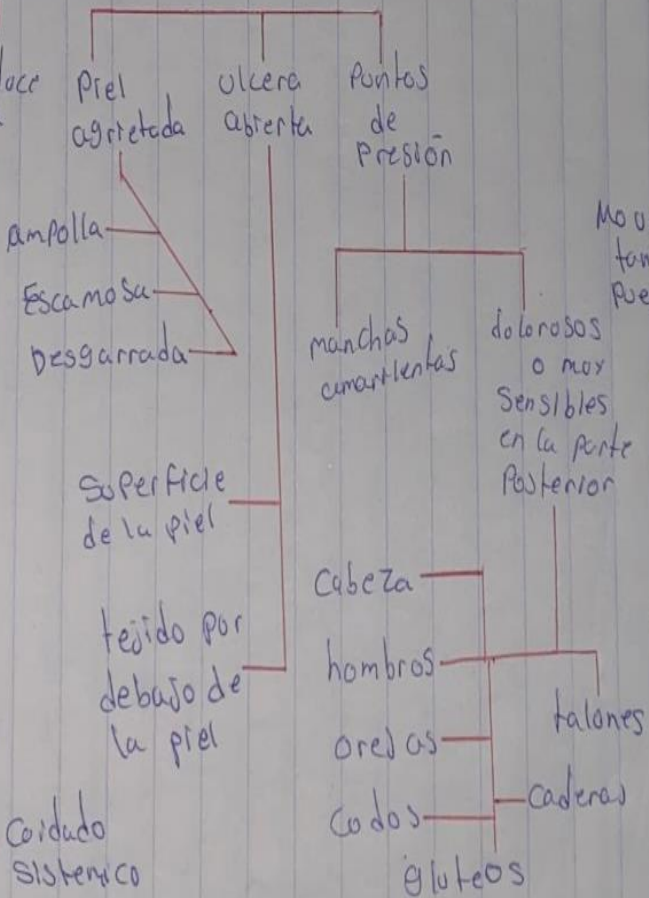 Piel
agrietada
Ulcera
abierta
Puntos
de
Presión
Ampolla
Escamosa
Desgarrada
manchas
amarillentas
dolorosos
o muy
Sensibles
en la parte
Posterior
Superficie
de la piel
tejido por
debajo de
la piel
Cabeza
hombros
orejas
Codos
gluteos
talones
Caderas
Cuidado
Sistemico